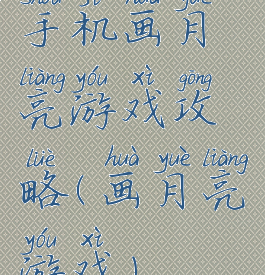 shǒu jī huà yuè
手机画月
liàng yóu xì gōng
亮游戏攻
lüè huà yuè liàng
略(画月亮
yóu xì
游戏)